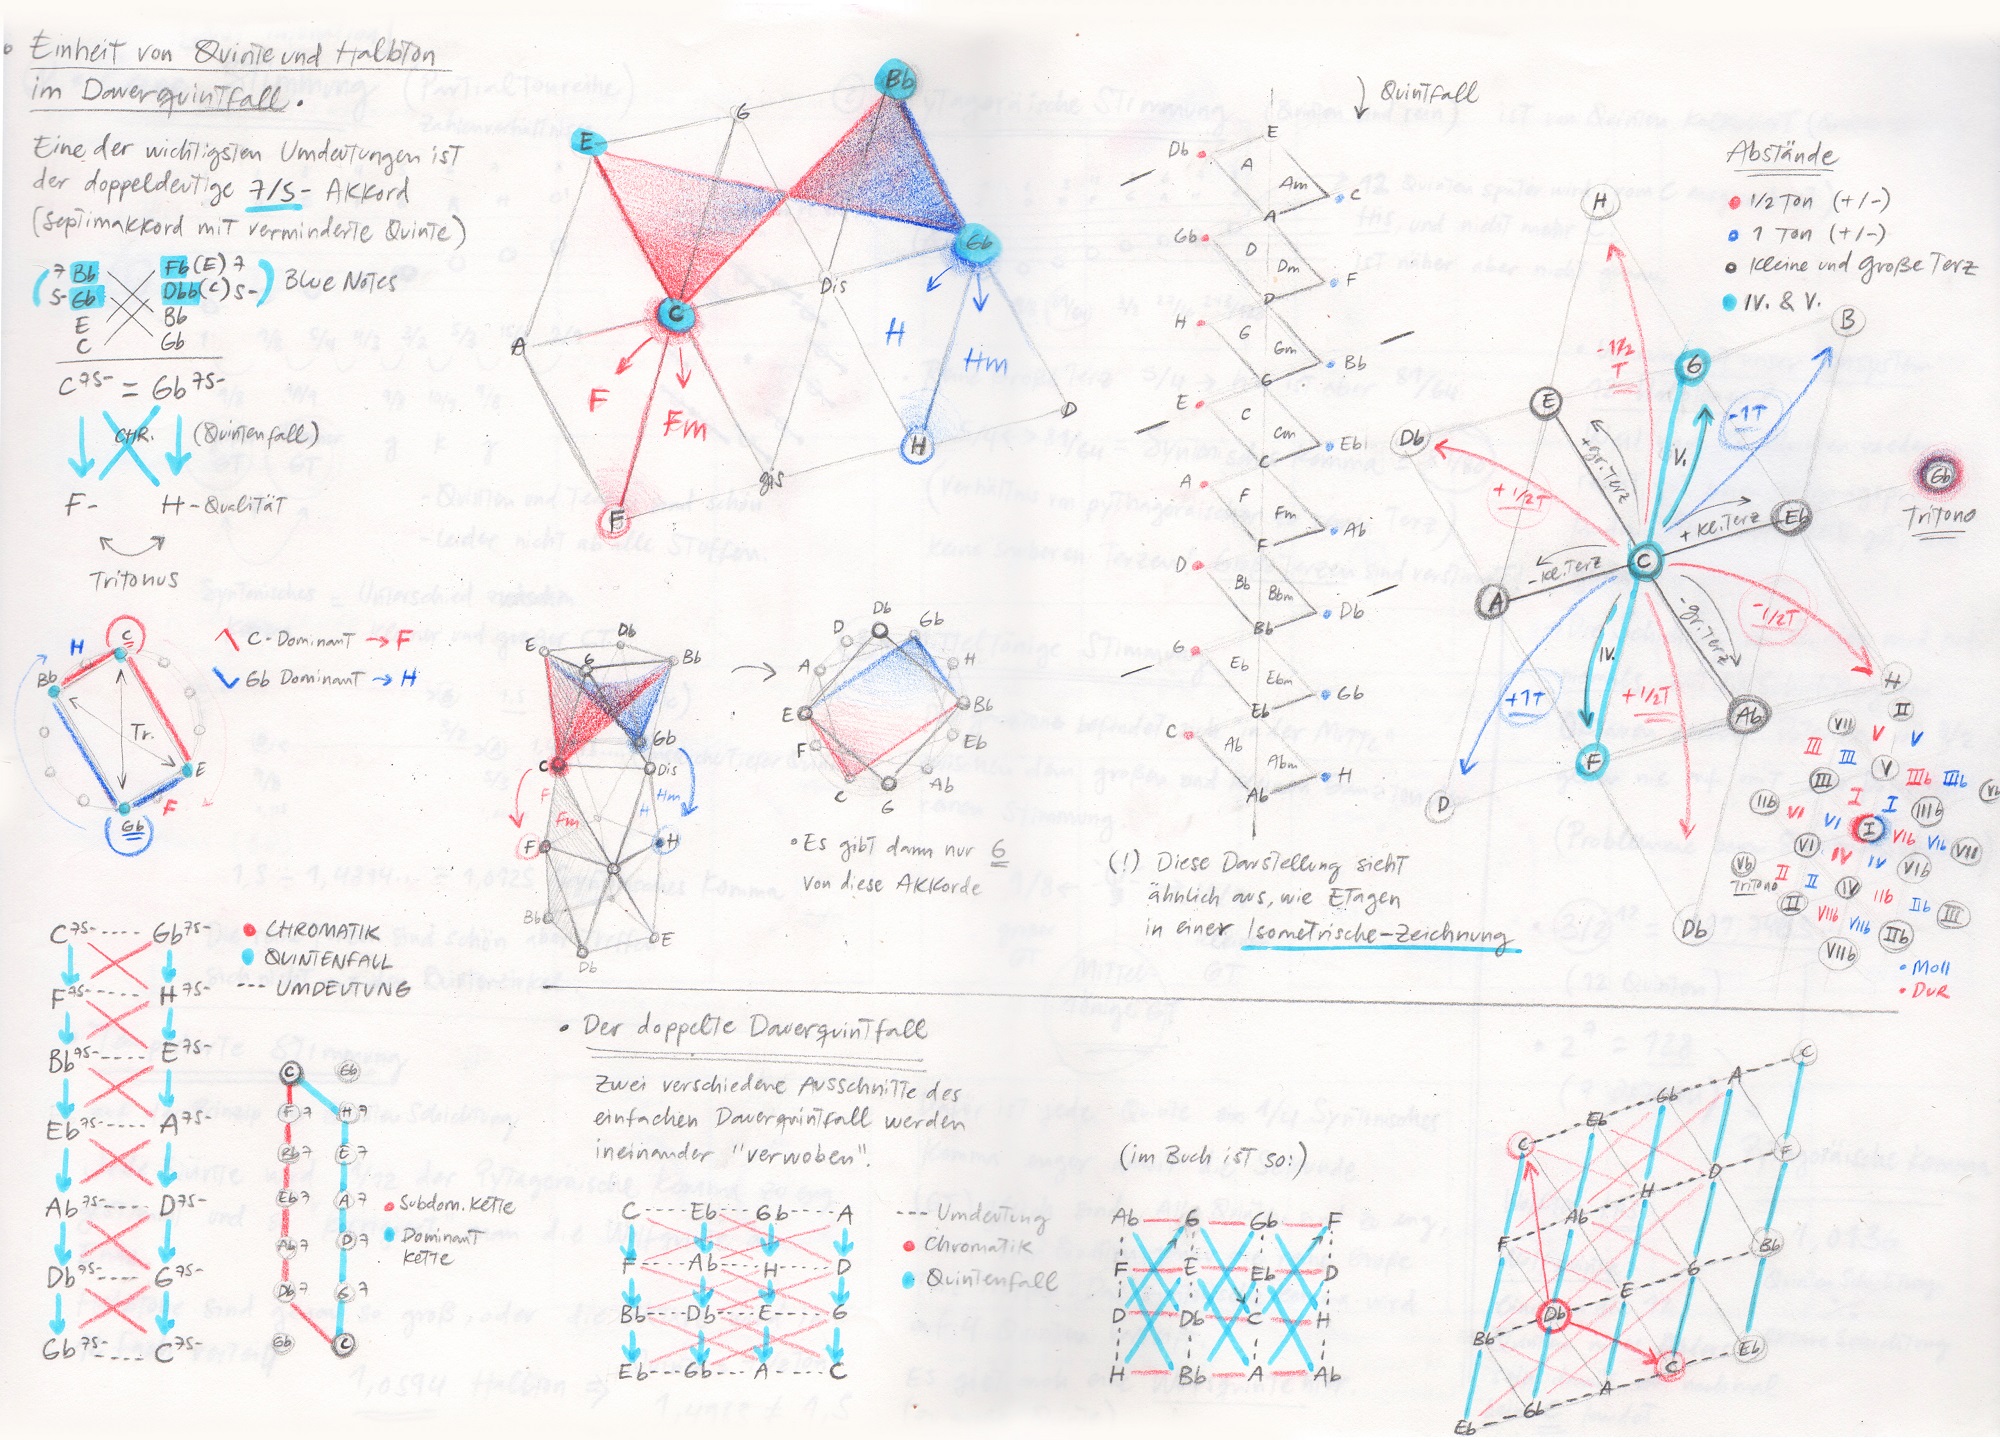 Einheit von Quinte und Halbton
im Dauerquintfall.
Eine der wichtigsten Umdeutungen ist
der doppeldeutige 7/5- Akkord
(Septimakkord mit verminderte Quinte)
7 Bb Fb(E) 7
5- Gb Dbb(C) 5-
E Bb
C Gb
Blue Notes
C7 5- = Gb7 5-
CHR. (Quintenfall)
F- H-Qualität
Tritonus
C
H
Bb
Tr.
E
F
Gb
C-Dominant → F
Gb Dominant → H
C7 5- Gb7 5-
F7 5- H7 5-
Bb7 5- E7 5-
Eb7 5- A7 5-
Ab7 5- D7 5-
Db7 5- G7 5-
Gb7 5- C7 5-
CHROMATIK
QUINTENFALL
--- UMDEUTUNG
C Gb
F7 H7
Bb7 E7
Eb7 A7
Ab7 D7
Db7 G7
Gb C
Subdom. Kette
Dominant
Kette
Bb
G
E
Gb
Dis
C
A
H
Hm
F
Fm
D
H
gis
F
E
Db
G
Bb
Gb
C
Dis
F
Hm
Fm
H
F
H
Bb
E
Db
Db
Gb
D
A
H
E
Bb
F
Eb
C
Ab
G
Es gibt dann nur 6
von diese Akkorde
Quintfall
E
Db
A
Am
C
A
Gb
D
Dm
F
D
H
G
Gm
Bb
G
E
C
Cm
Eb
C
A
F
Fm
Ab
F
D
Bb
Bbm
Db
Bb
G
Eb
Ebm
Gb
Eb
C
Ab
Abm
H
Ab
(!) Diese Darstellung sieht
ähnlich aus, wie Etagen
in einer Isometrische-Zeichnung
Abstände
1/2 Ton (+/-)
1 Ton (+/-)
Kleine und große Terz
IV. & V.
H
B
G
-1/2
T
-1T
E
Db
V.
+gr.Terz
Gb
Tritono
+1/2T
+Kl.Terz
Eb
C
-Kl.Terz
A
-gr.Terz
-1/2T
IV.
+1T
+1/2T
H
Ab
F
D
Db
II
VII V V
III III V
III IIIb IIIb
IIb I I IIIb
VI VI I VIb VIb VII
VI IV IV VIb
Vb
Tritono
II II IV IIb IIb III
II VIIb VIIb IIb
VIIb
Moll
Dur
Der doppelte Dauerquintfall
Zwei verschiedene Ausschnitte des
einfachen Dauerquintfall werden
ineinander "verwoben".
C Eb Gb A
F Ab H D
Bb Db E G
Eb Gb A C
--- Umdeutung
Chromatik
Quintenfall
(im Buch ist so:)
Ab G Gb F
F E Eb D
D Db C H
H Bb A Ab
C Eb Gb A C
F Ab H D F
Bb Db E G Bb
Eb Gb A C Eb